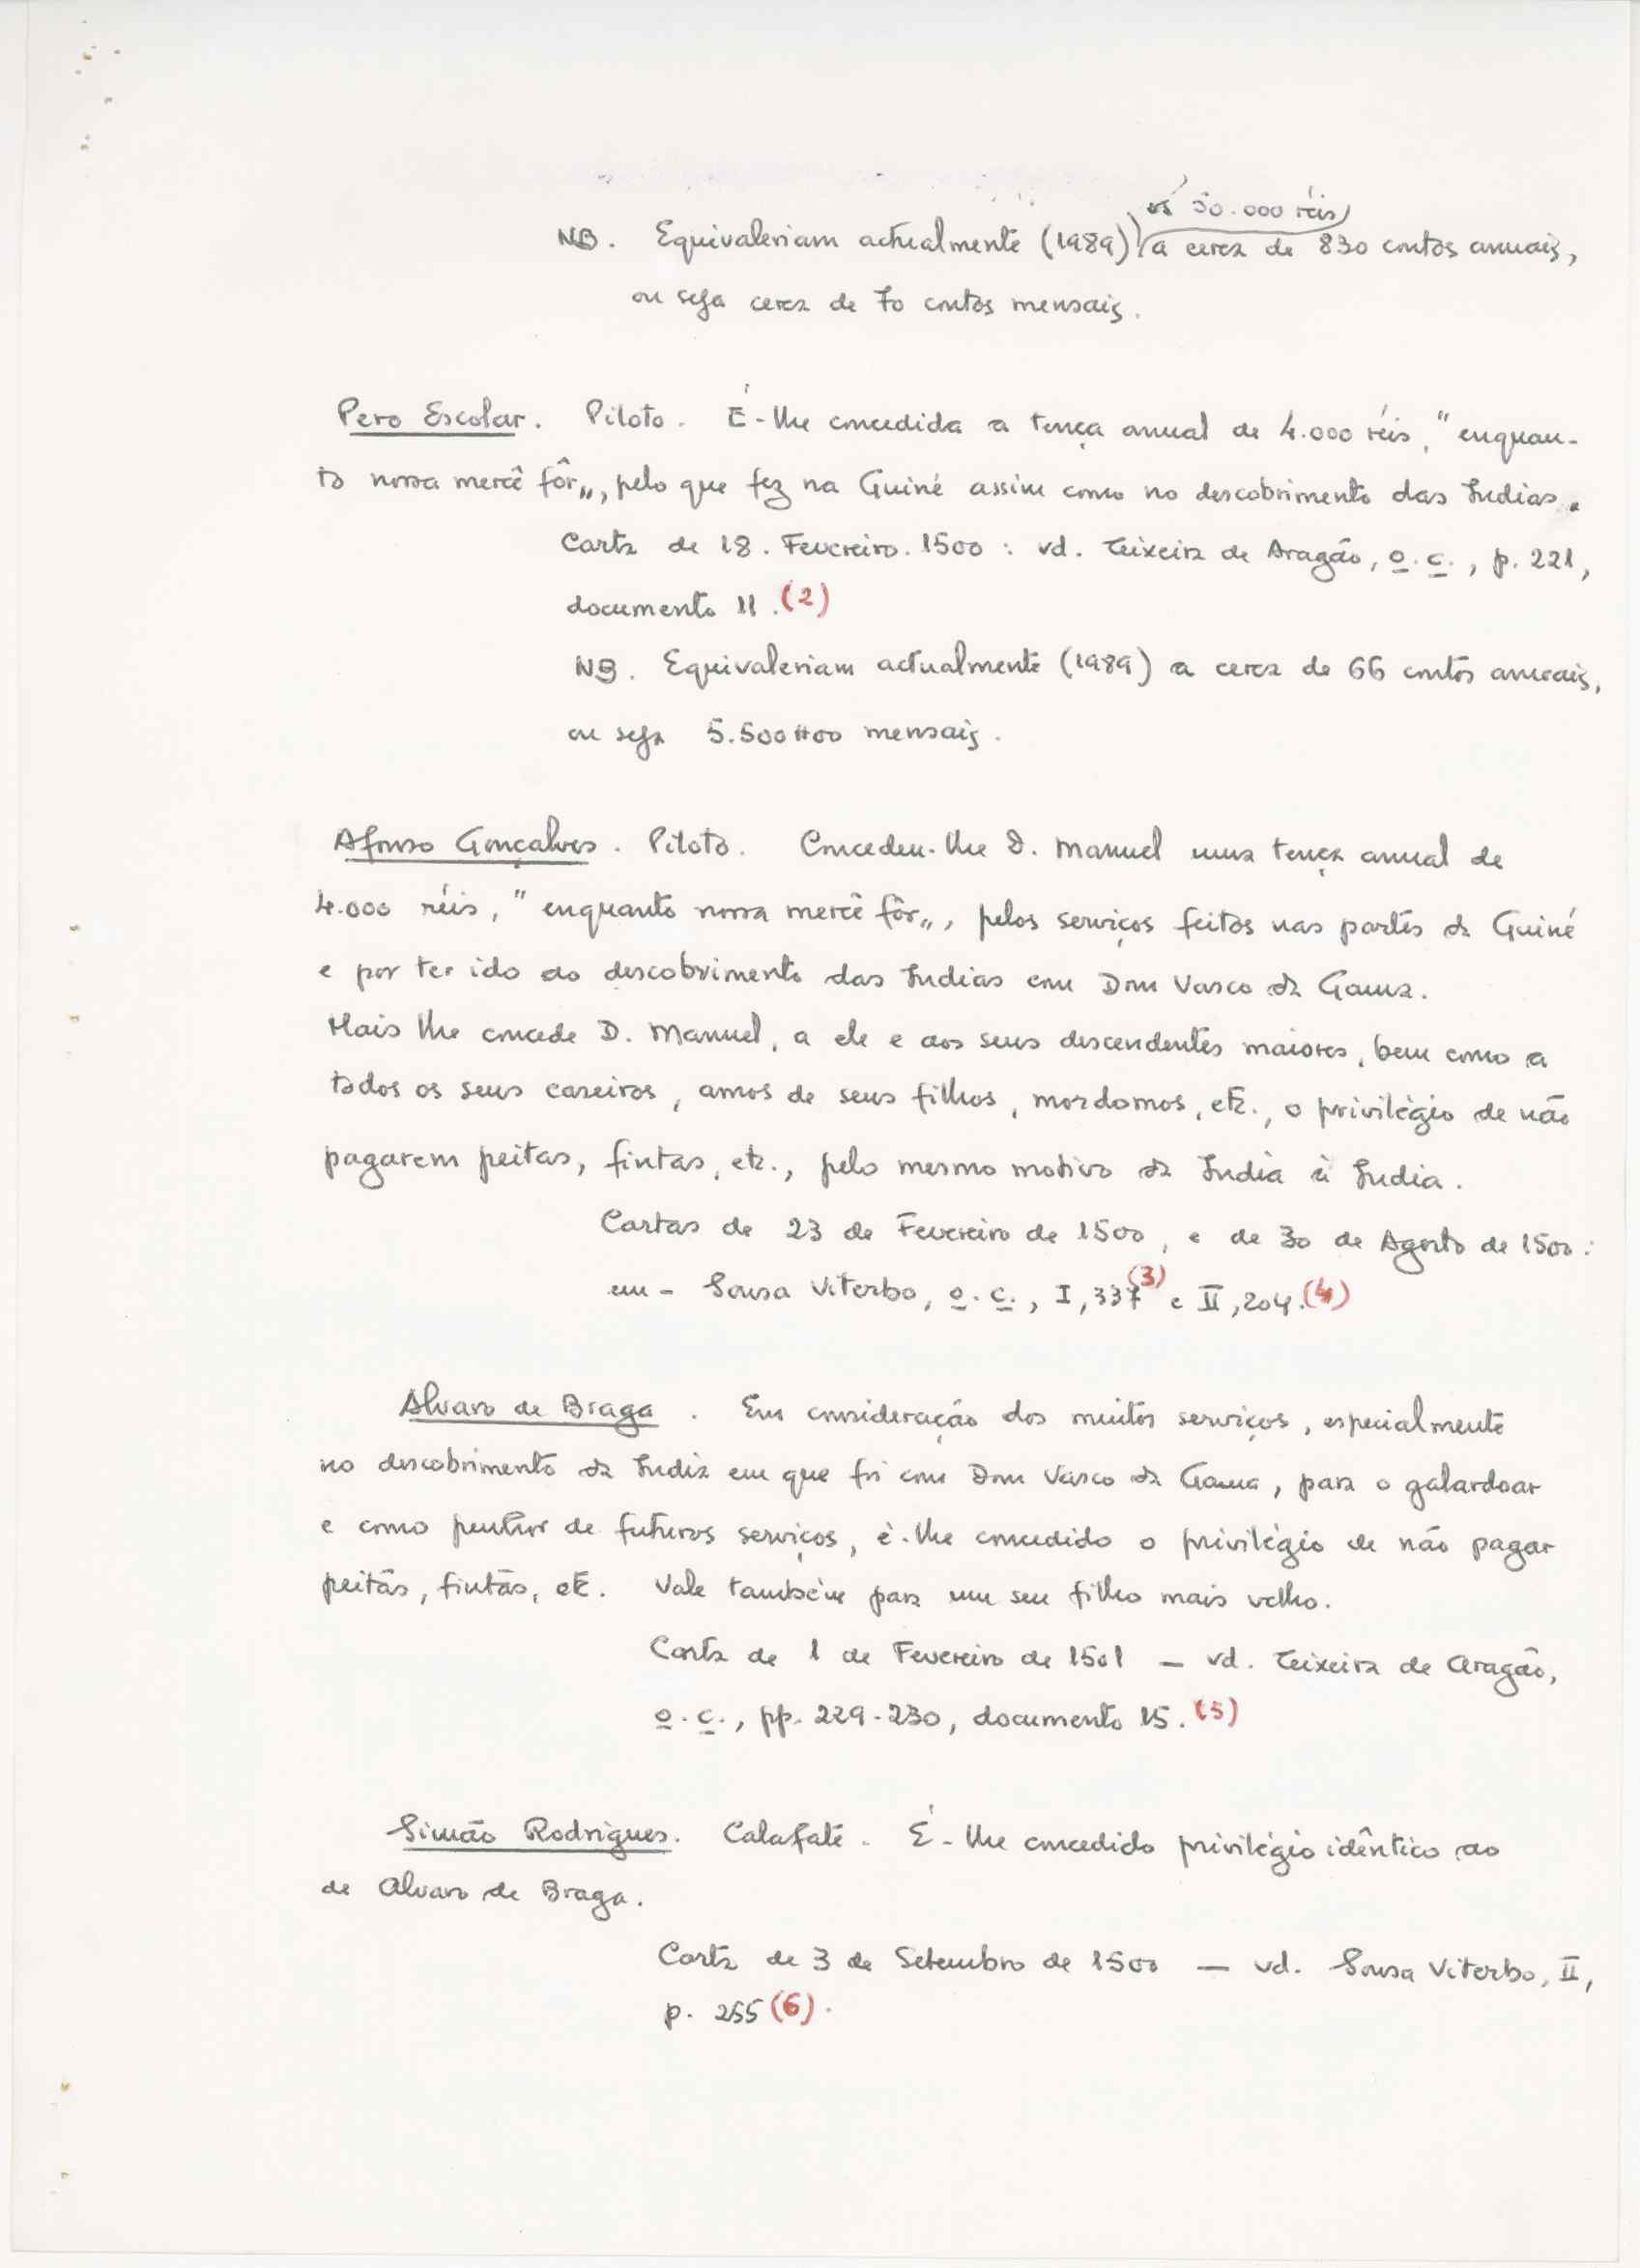 os 50.000 réis
NB. Equivaleriam actualmente (1989) a cerca de 830 contos anuais,
ou seja cerca de 70 contos mensais.
Pero Escolar. Piloto. É-lhe concedida a tença anual de 4.000 réis, "enquan-
to nossa mercê fôr„, pelo que fez na Guiné assim como no descobrimento das Indias.
Carta de 18. Fevereiro. 1500: vd. Teixeira de Aragão, o.c., p. 221,
documento 11. (2)
NB. Equivaleriam actualmente (1989) a cerca de 66 contos anuais,
ou seja 5.500$00 mensais.
Afonso Gonçalves. Piloto. Concedeu-lhe D. Manuel uma tença anual de
4.000 réis, "enquanto nossa mercê fôr„, pelos serviços feitos nas partes da Guiné
e por ter ido ao descobrimento das Indias com Dom Vasco da Gama.
Mais lhe concede D. Manuel, a ele e aos seus descendentes maiores, bem como a
todos os seus caseiros, amos de seus filhos, mordomos, etc., o privilégio de não
pagarem peitas, fintas, etc., pelo mesmo motivo da India à India.
Cartas de 23 de Fevereiro de 1500, e de 30 de Agosto de 1500:
em - Sousa Viterbo, o.c., I, 337 (3) e II, 204. (4)
Alvaro de Braga. Em consideração dos muitos serviços, especialmente
no descobrimento da India em que foi com Dom Vasco da Gama, para o galardoar
e como penhor de futuros serviços, é-lhe concedido o privilégio de não pagar
peitas, fintas, etc. Vale também para um seu filho mais velho.
Carta de 1 de Fevereiro de 1501 — vd. Teixeira de Aragão,
o.c., pp. 229-230, documento 15. (5)
Simão Rodrigues. Calafate. É-lhe concedido privilégio idêntico ao
de Alvaro de Braga.
Carta de 3 de Setembro de 1500 — vd. Sousa Viterbo, II,
p. 255 (6).